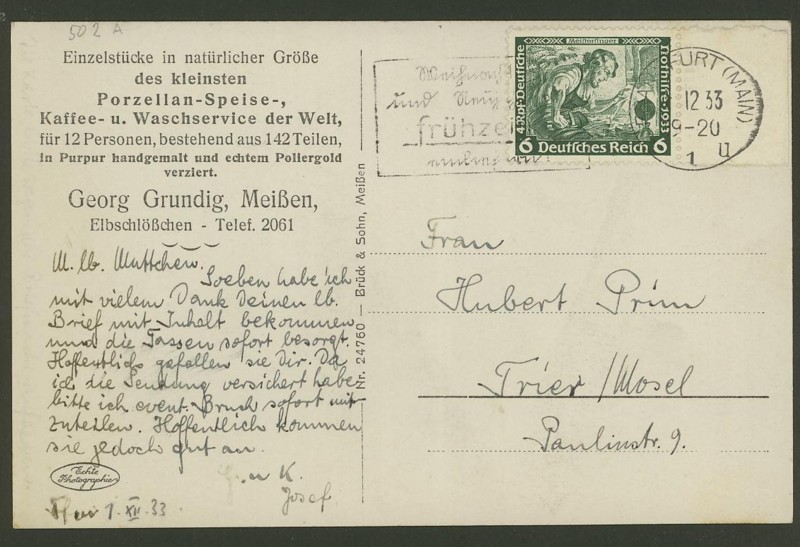 502 A
Einzelstücke in natürlicher Größe
des kleinsten
Porzellan-Speise-,
Kaffee- u. Waschservice der Welt,
für 12 Personen, bestehend aus 142 Teilen,
in Purpur handgemalt und echtem Poliergold
verziert.
Georg Grundig, Meißen,
Elbschlößchen - Telef. 2061
M. lb. Muttchen.
Soeben habe ich
mit vielem Dank Deinen lb.
Brief mit Inhalt bekommen
und die Tassen sofort besorgt.
Hoffentlich gefallen sie Dir. Da
ich die Sendung versichert habe
bitte ich event. Bruch sofort mit-
zuteilen. Hoffentlich kommen
sie jedoch gut an.
u K.
Josef
1. XII. 33
Echte
Photographie
Nr. 24760 — Brück & Sohn, Meißen
und
frühzei
FURT (MAIN)
12 33
9-20
1 u
Meistersinger
4 Rpf. Deutsche
Nothilfe 1933
6 Deutsches Reich 6
Frau
Hubert Prim
Trier/Mosel
Paulinstr. 9.